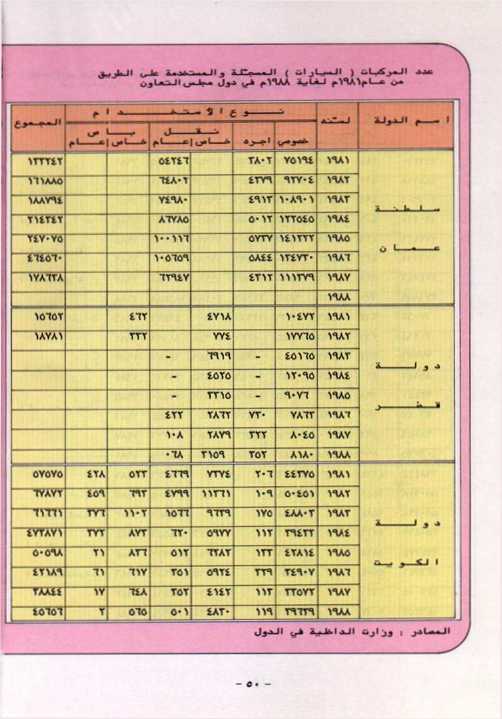 عدد المركبات ( السيارات ) المسجلة والمستخدمة على الطريق
من عام ١٩٨١م لغاية ١٩٨٨م في دول مجلس التعاون
اسم الدولة السنه نوع الاستخدام المجموع
خصوصي اجره نقل خاص عام باص خاص عام
سلطنة عمان
١٩٨١ ٧٥١٩٤ ٣٨٠٢ ٥٤٢٤٦ ١٣٣٢٤٢
١٩٨٢ ٩٢٧٠٤ ٤٣٧٩ ٦٤٨٠٢ ١٦١٨٨٥
١٩٨٣ ١٠٨٩٠١ ٤٩١٣ ٧٤٩٨٠ ١٨٨٧٩٤
١٩٨٤ ١٢٢٥٤٥ ٥٠١٢ ٨٦٧٨٥ ٢١٤٣٤٢
١٩٨٥ ١٤١٢٢٢ ٥٧٣٧ ١٠٠١١٦ ٢٤٧٠٧٥
١٩٨٦ ٥٨٤٤ ١٠٥٦٠٩
١٩٨٧ ١١١٣٧٩ ٤٣١٢ ٦٢٩٤٧ ١٧٨٦٣٨
١٩٨٨
دولة قطر
١٩٨١ ١٠٤٧٢ ٤٧١٨ ٤٦٢ ١٥٦٥٢
١٩٨٢ ١٧٧٦٥ ٧٧٤ ٢٣٢ ١٨٧٨١
١٩٨٣ ٤٥١٦٥ - ٦٩١٩ -
١٩٨٤ ١٢٠٩٥ - ٤٥٢٥ -
١٩٨٥ ٩٠٧٦ - ٣٣١٥ -
١٩٨٦ ٧٨٦٣ ٧٣٠ ٢٨٦٢ ٤٢٢
١٩٨٧ ٨٠٤٥ ٣٢٢ ٢٨٧٩ ١٠٨
١٩٨٨ ٨١٨٠ ٣٥٢ ٣١٥٩ ٠٦٨
دولة الكويت
١٩٨١ ٤٤٣٧٥ ٢٠٦ ٧٣٧٤ ٤٦٦٩ ٥٢٣ ٤٢٨ ٥٧٥٧٥
١٩٨٢ ٥٠٤٥١ ١٠٩ ١١٣٦١ ٤٧٩٩ ٦٩٣ ٤٥٩ ٦٧٨٧٢
١٩٨٣ ٤٨٨٠٣ ١٧٥ ٩٦٣٩ ١٥٦٦ ١١٠٢ ٣٧٦ ٦١٦٦١
١٩٨٤ ٣٩٤٣٢ ١١٢ ٥٩٧٧ ٦٢٠ ٨٧٣ ٣٧٢
١٩٨٥ ٤٢٨١٤ ١٣٣ ٦٢٨٢ ٥١٢ ٨٣٦ ٢١ ٥٠٥٩٨
١٩٨٦ ٣٤٩٠٧ ٣٣٩ ٥٩٢٤ ٣٥١ ٦١٧ ٦١ ٤٢١٨٩
١٩٨٧ ٣٣٥٧٢ ١١٣ ٤١٤٢ ٣٥٢ ٦٤٨ ١٧ ٣٨٨٤٤
١٩٨٨ ٣٩٦٣٩ ١١٩ ٤٨٣٠ ٥٠١ ٥٦٥ ٢ ٤٥٦٥٦
المصادر : وزارت الداخلية في الدول
- ٥٠ -